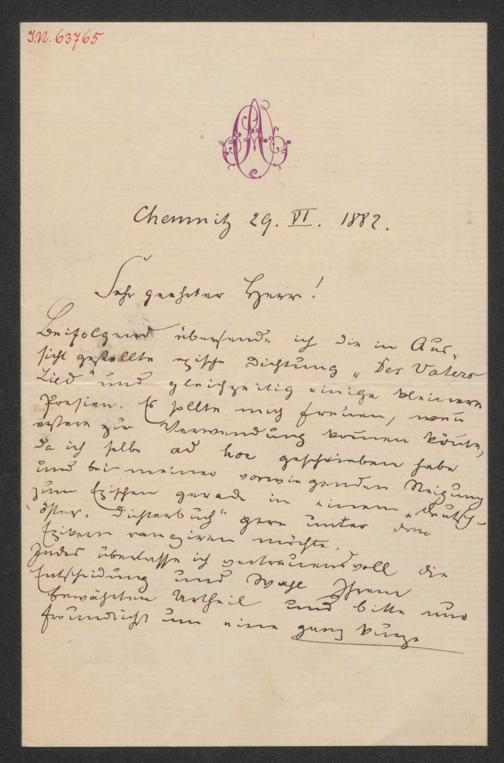 I.N. 63765
Chemnitz 29. VI. 1882.
Sehr geehrter Herr!
Beifolgend übersende ich die in Aus-
sicht gestellte epische Dichtung „Des Vaters
Lied" und gleichzeitig einige kleinere
Poesien. Es sollte mich freuen, wenn
erstere zur Verwendung kommen könnte,
da ich selbe ad hoc geschrieben habe
und bei meiner vorwiegenden Neigung
zum Epischen gerade in einem „Deutsch-
öster. Dichterbuch" gern unter den
Epikern rangiren möchte.
Indes überlasse ich vertrauensvoll die
Entscheidung und Wahl Ihrem
bewährten Urtheil und bitte nur
freundlichst um eine ganz kurze